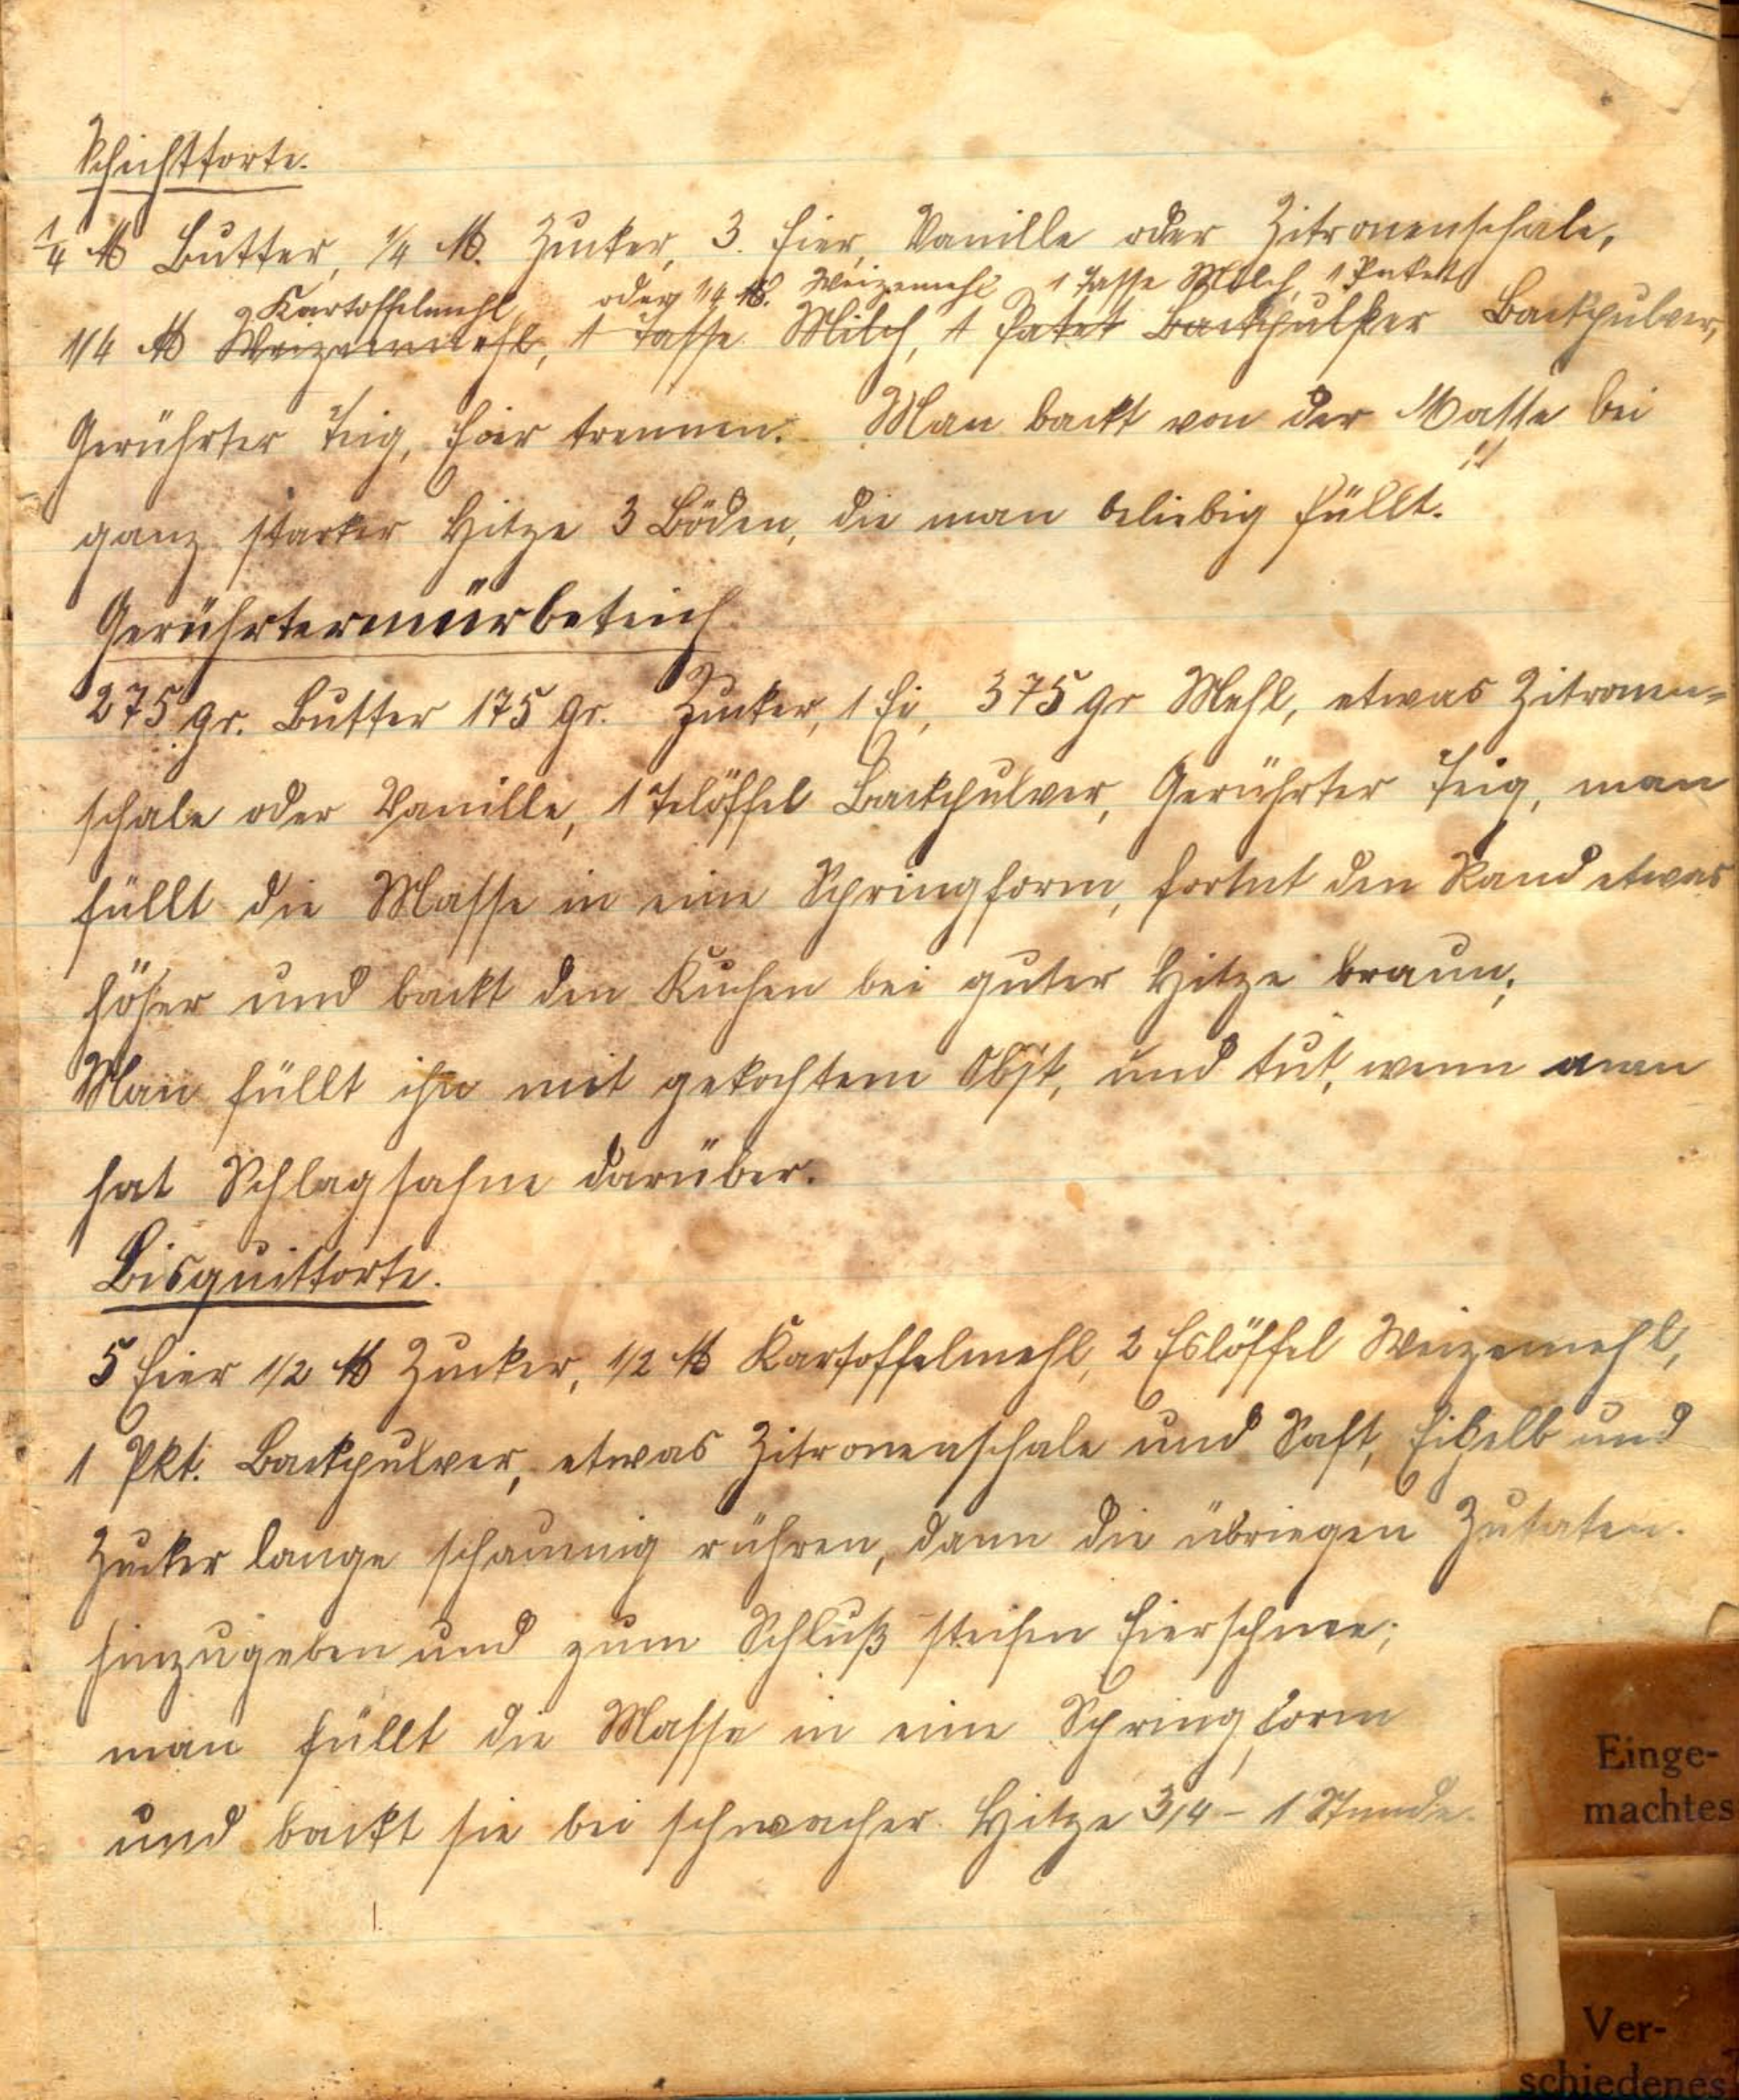 Schichttorte.
1/4 ℔ Butter, 1/4 ℔. Zucker, 3. Eier, Vanille oder Zitronenschale,
Kartoffelmehl, oder 1/4 ℔. Weizemehl 1 Tasse Milch, 1 Paket
1/4 ℔ Weizenmehl, 1 Tasse Milch, 1 Paket Backpulfer Backpulver,
Gerührter Teig, Eier trennen. Man backt von der Masse bei
ganz starker Hitze 3 Böden, die man beliebig füllt.
Gerührtermürbeteich
275 gr. Butter 175 gr. Zucker, 1 Ei, 375 gr Mehl, etwas Zitronen-
schale oder Vanille, 1 Telöffel Backpulver, Gerührter Teig, man
füllt die Masse in eine Springform, formt den Rand etwas
höher und backt den Kuchen bei guter Hitze braun;
Man füllt ihn mit gekochtem Obst, und tut, wenn man
hat Schlagsahne darüber.
Bisquittorte.
5 Eier 1/2 ℔ Zucker, 1/2 ℔ Kartoffelmehl, 2 Eslöffel Weizemehl,
1 Pkt. Backpulver, etwas Zitronenschale und Saft, Eigelb und
Zucker lange schaumig rühren, dann die übriegen Zutaten.
hinzugeben und zum Schluß steifen Eierschnee;
man füllt die Masse in eine Springform
und backt sie bei schwacher Hitze 3/4 - 1 Stunde.
Einge-
machtes
Ver-
schiedenes